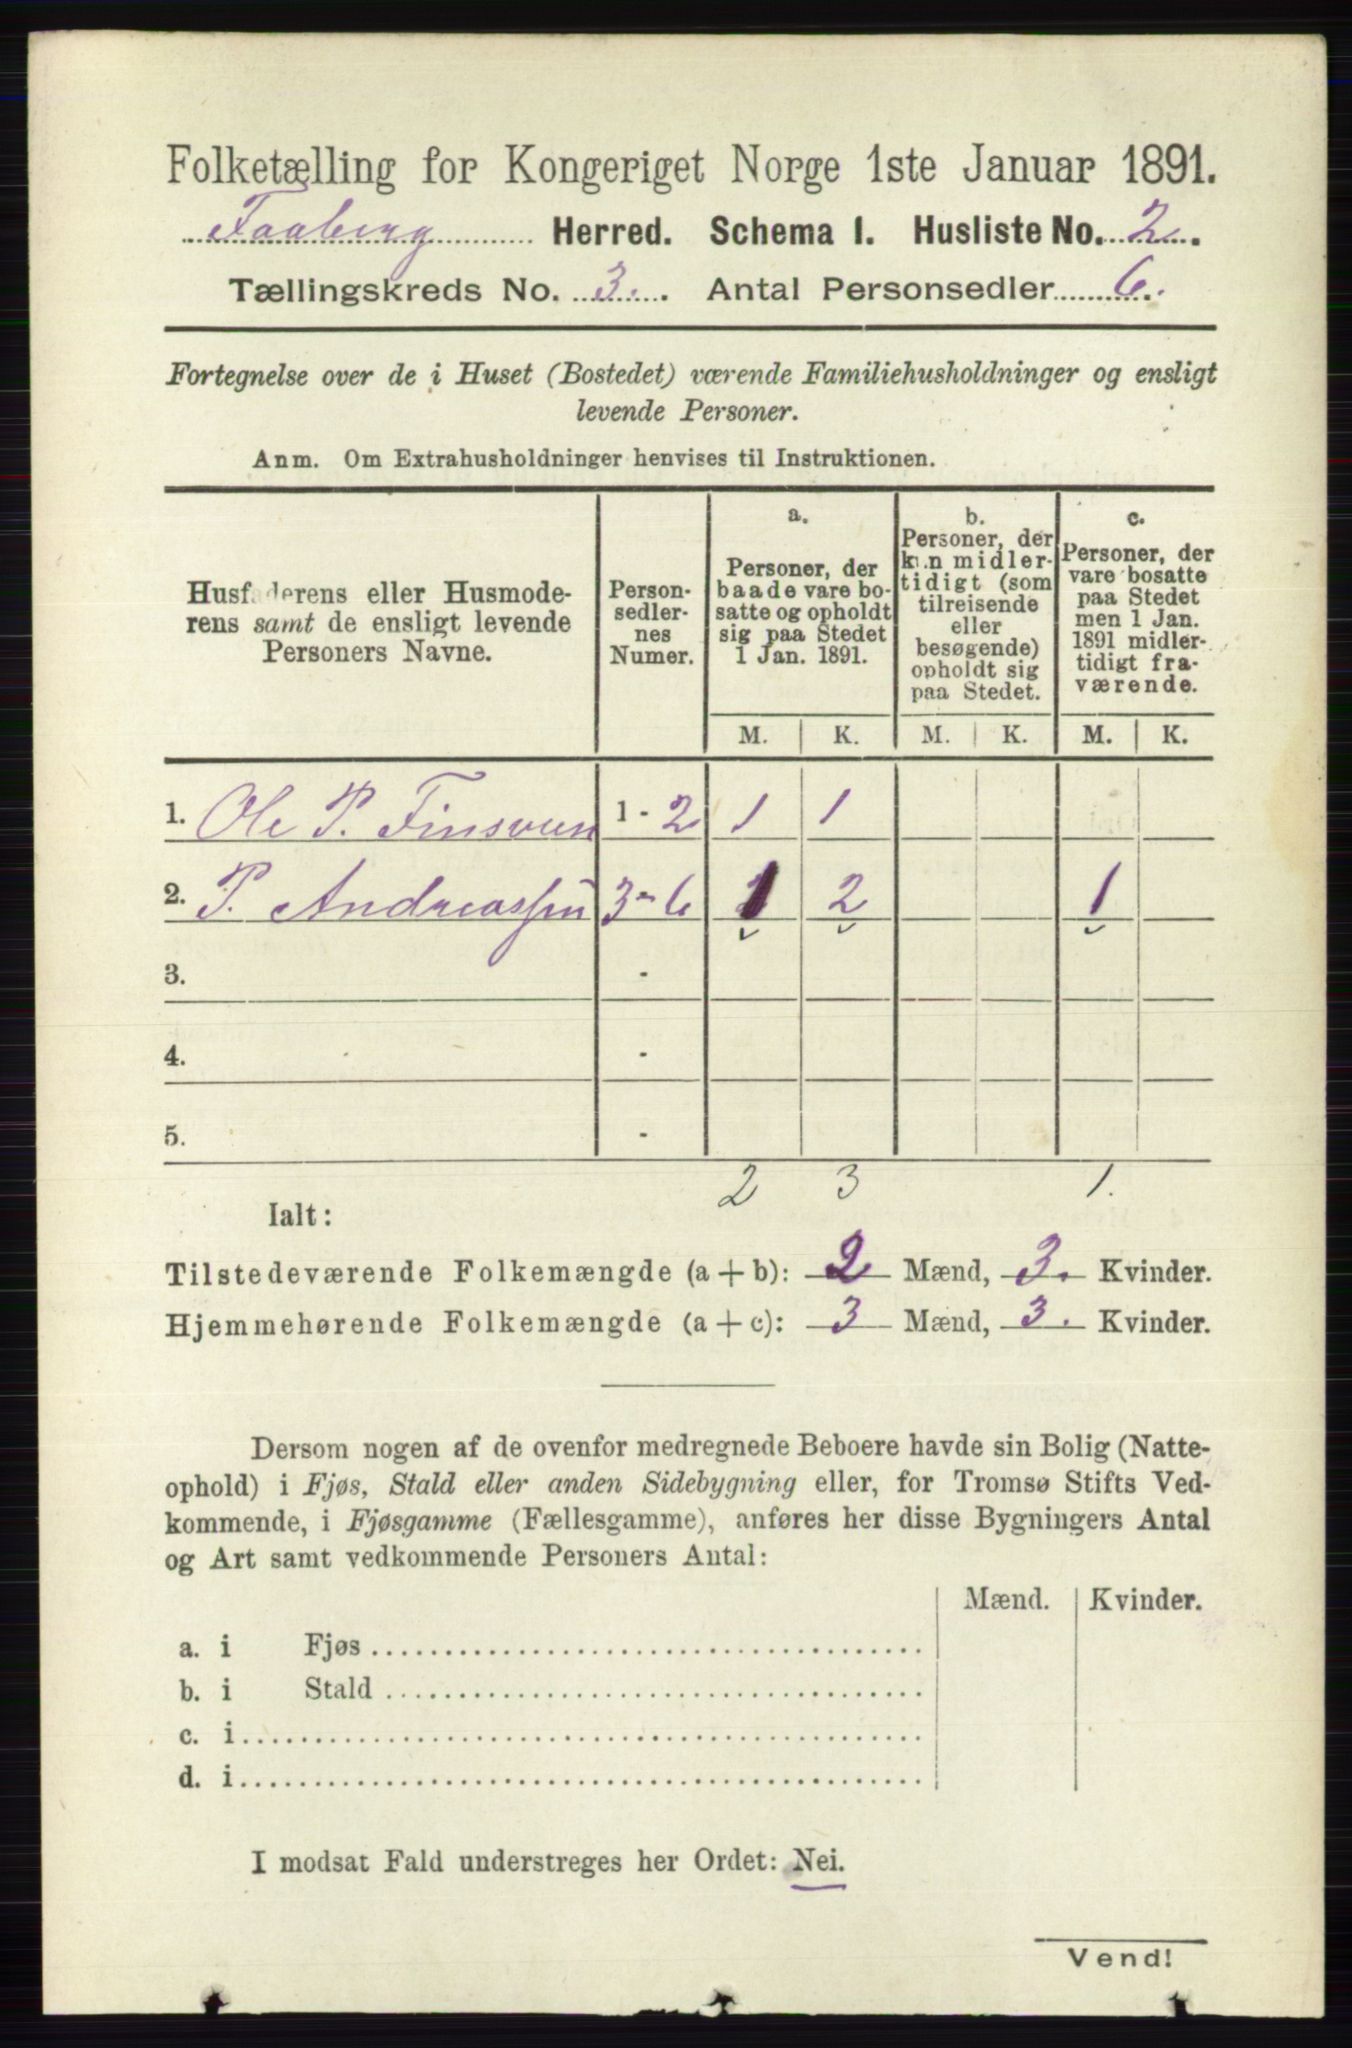 Folketælling for Kongeriget Norge 1ste Januar 1891.
Faaberg Herred. Schema I. Husliste No. 2.
Tællingskreds No. 3. Antal Personsedler 6.
Fortegnelse over de i Huset (Bostedet) værende Familiehusholdninger og ensligt
levende Personer.
Anm. Om Extrahusholdninger henvises til Instruktionen.
Husfaderens eller Husmode-
rens samt de ensligt levende
Personers Navne.
Person-
sedler-
nes
Numer.
a.
Personer, der
baade vare bo-
satte og opholdt
sig paa Stedet
1 Jan. 1891.
b.
Personer, der
kun midler-
tidigt (som
tilreisende
eller
besøgende)
opholdt sig
paa Stedet.
c.
Personer, der
vare bosatte
paa Stedet
men 1 Jan.
1891 midler-
tidigt fra-
værende.
M. K. M. K. M. K.
1. Ole P. 1 - 2 1 1
2. P. Andreassen 3 - 6 1 2 1
3. -
4. -
5. -
2 3 1.
Ialt:
Tilstedeværende Folkemængde (a + b): 2 Mænd, 3. Kvinder.
Hjemmehørende Folkemængde (a + c): 3 Mænd, 3. Kvinder.
Dersom nogen af de ovenfor medregnede Beboere havde sin Bolig (Natte-
ophold) i Fjøs, Stald eller anden Sidebygning eller, for Tromsø Stifts Ved-
kommende, i Fjøsgamme (Fællesgamme), anføres her disse Bygningers Antal
og Art samt vedkommende Personers Antal:
Mænd. Kvinder.
a. i Fjøs
b. i Stald
c. i
d. i
I modsat Fald understreges her Ordet: Nei.
Vend!